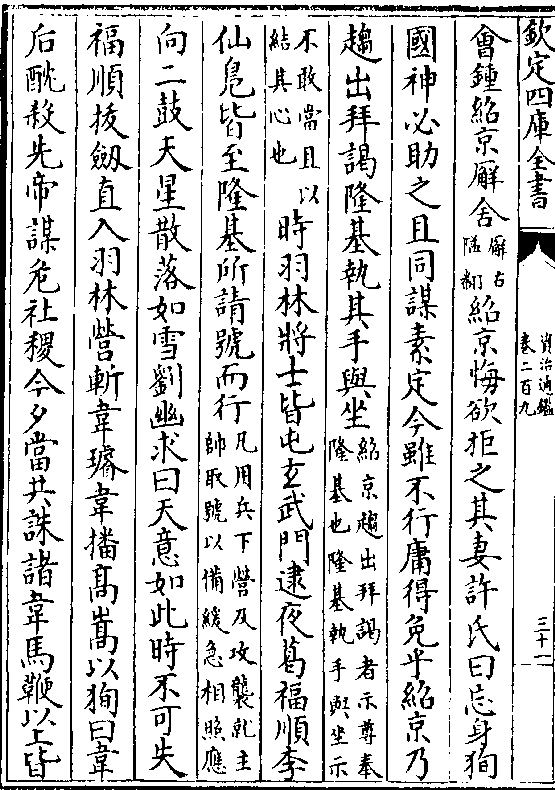 欽定四庫全書
資治通鑑
卷二百九
三十一
會鍾紹京廨舍廨古隘翻紹京悔欲拒之其妻許氏曰忘身狥
國神必助之且同謀素定今雖不行庸得免乎紹京乃
趨出拜謁隆基執其手與坐紹京趨出拜謁者示尊奉隆基也隆基執手與坐示
不敢當且以結其心也時羽林將士皆屯玄武門逮夜葛福順李
仙鳧皆至隆基所請號而行凡用兵下營及攻襲就主帥取號以備緩急相照應
向二鼓天星散落如雪劉幽求曰天意如此時不可失
福順拔劒直入羽林營斬韋璿韋播髙嵩以狥曰韋
后酖殺先帝謀危社稷今夕當共誅諸韋馬鞭以上皆